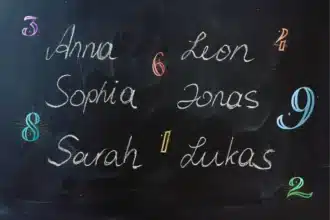 3 Anna Leon 4
6
Sophia Jonas 9
8
Sarah 1 Lukas
2